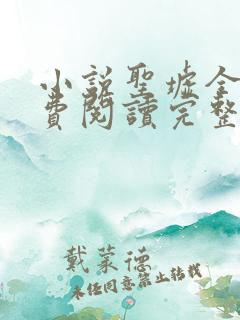 小説聖墟全
費閱讀完整
戴萊德
未經同意禁止轉載